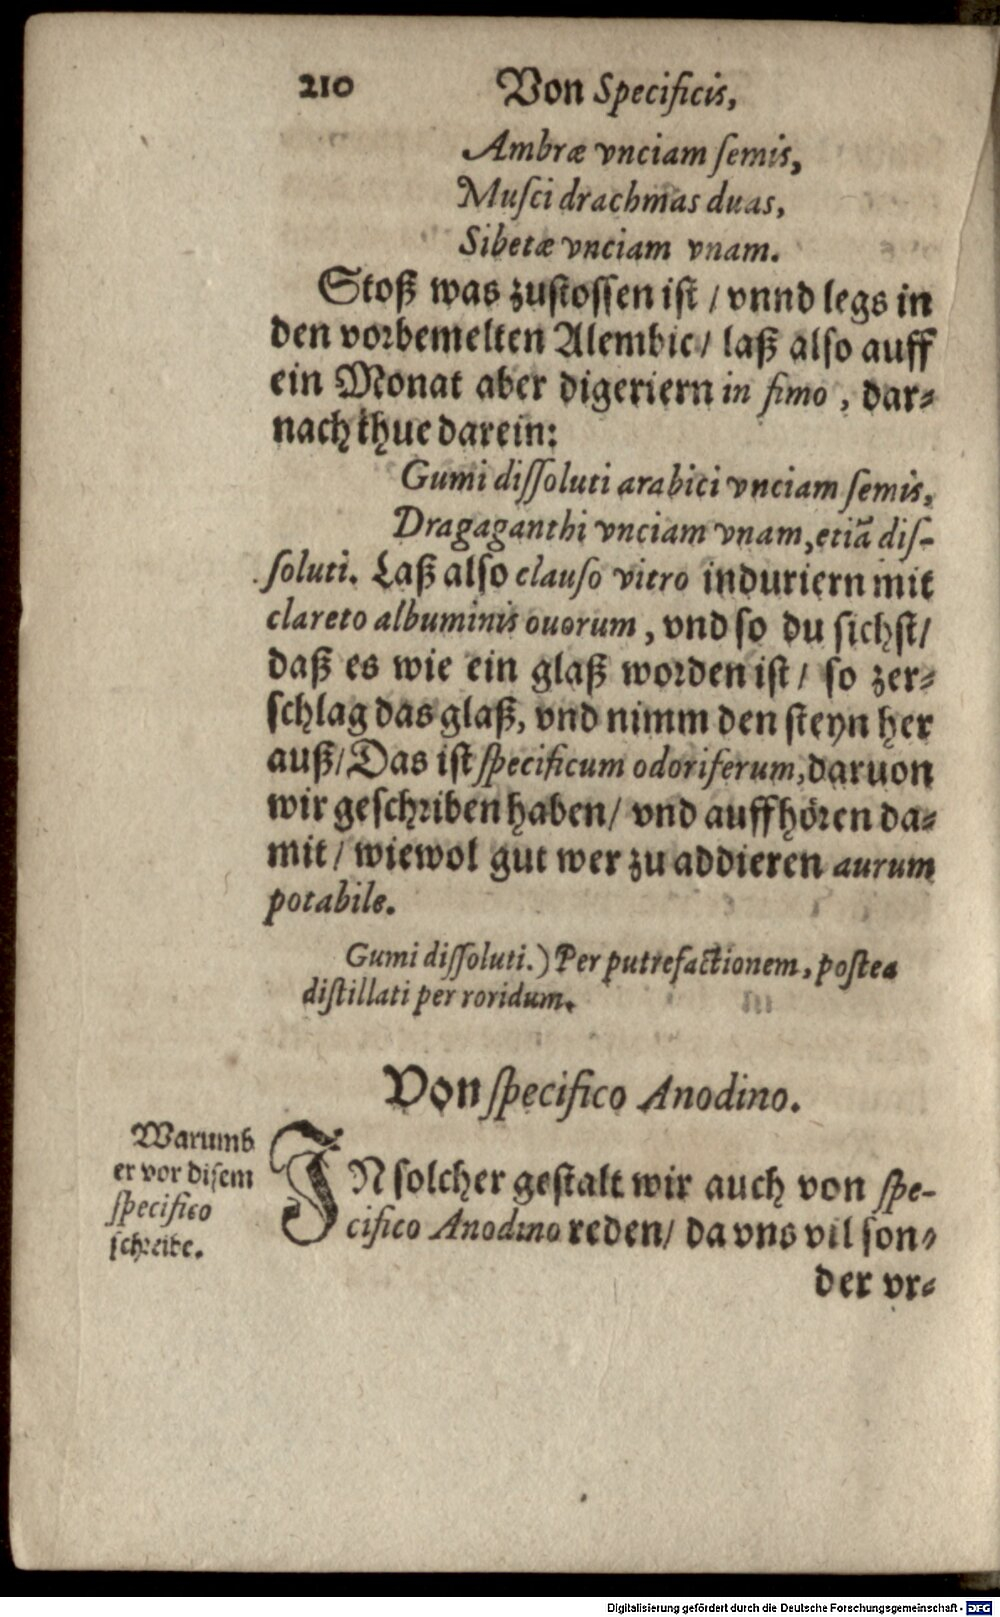 210
Von Specificis,
Ambræ vnciam ſemis,
Muſci drachmas duas,
Sibetæ vnciam vnam.
Stoß was zuſtoſſen iſt / vnnd legs in
den vorbemelten Alembic / laß alſo auff
ein Monat aber digeriern in fimo , dar⸗
nach thue darein:
Gumi diſſoluti arabici vnciam ſemis,
Dragaganthi vnciam vnam, etiã diſ-
ſoluti. Laß alſo clauſo vitro induriern mit
clareto albuminis ouorum , vnd ſo du ſichſt /
daß es wie ein glaß worden iſt / ſo zer⸗
ſchlag das glaß, vnd nimm den ſteyn her
auß / Das iſt ſpecificum odoriferum, daruon
wir geſchriben haben / vnd auffhören da⸗
mit / wiewol gut wer zu addieren aurum
potabile.
Gumi diſſoluti.) Per putrefactionem, poſtea
diſtillati per roridum.
Von ſpecifico Anodino.
Warumb
er vor diſem
ſpecifico
ſchreibe.
IN ſolcher geſtalt wir auch von ſpe-
cifico Anodino reden / da vns vil ſon⸗
der vr⸗
Digitalisierung gefördert durch die Deutsche Forschungsgemeinschaft - DFG